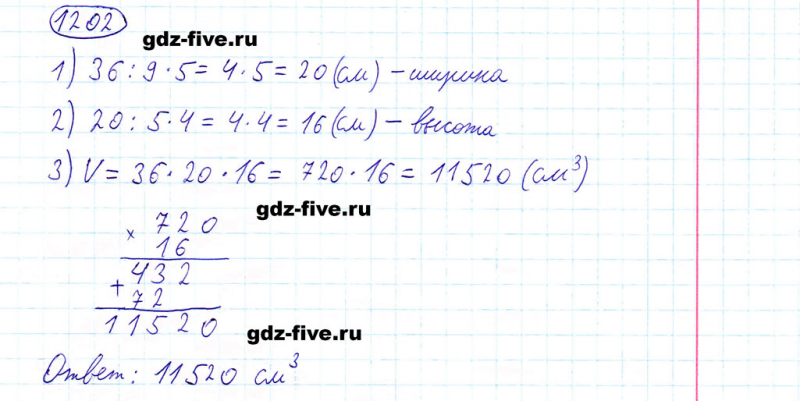 1202
gdz-five.ru
1) 36 : 9 · 5 = 4 · 5 = 20 (см) – ширина
2) 20 : 5 · 4 = 4 · 4 = 16 (см) – высота
3) V = 36 · 20 · 16 = 720 · 16 = 11520 (см³)
gdz-five.ru
× 720
16
+ 432
72
11520
gdz-five.ru
Ответ: 11520 см³